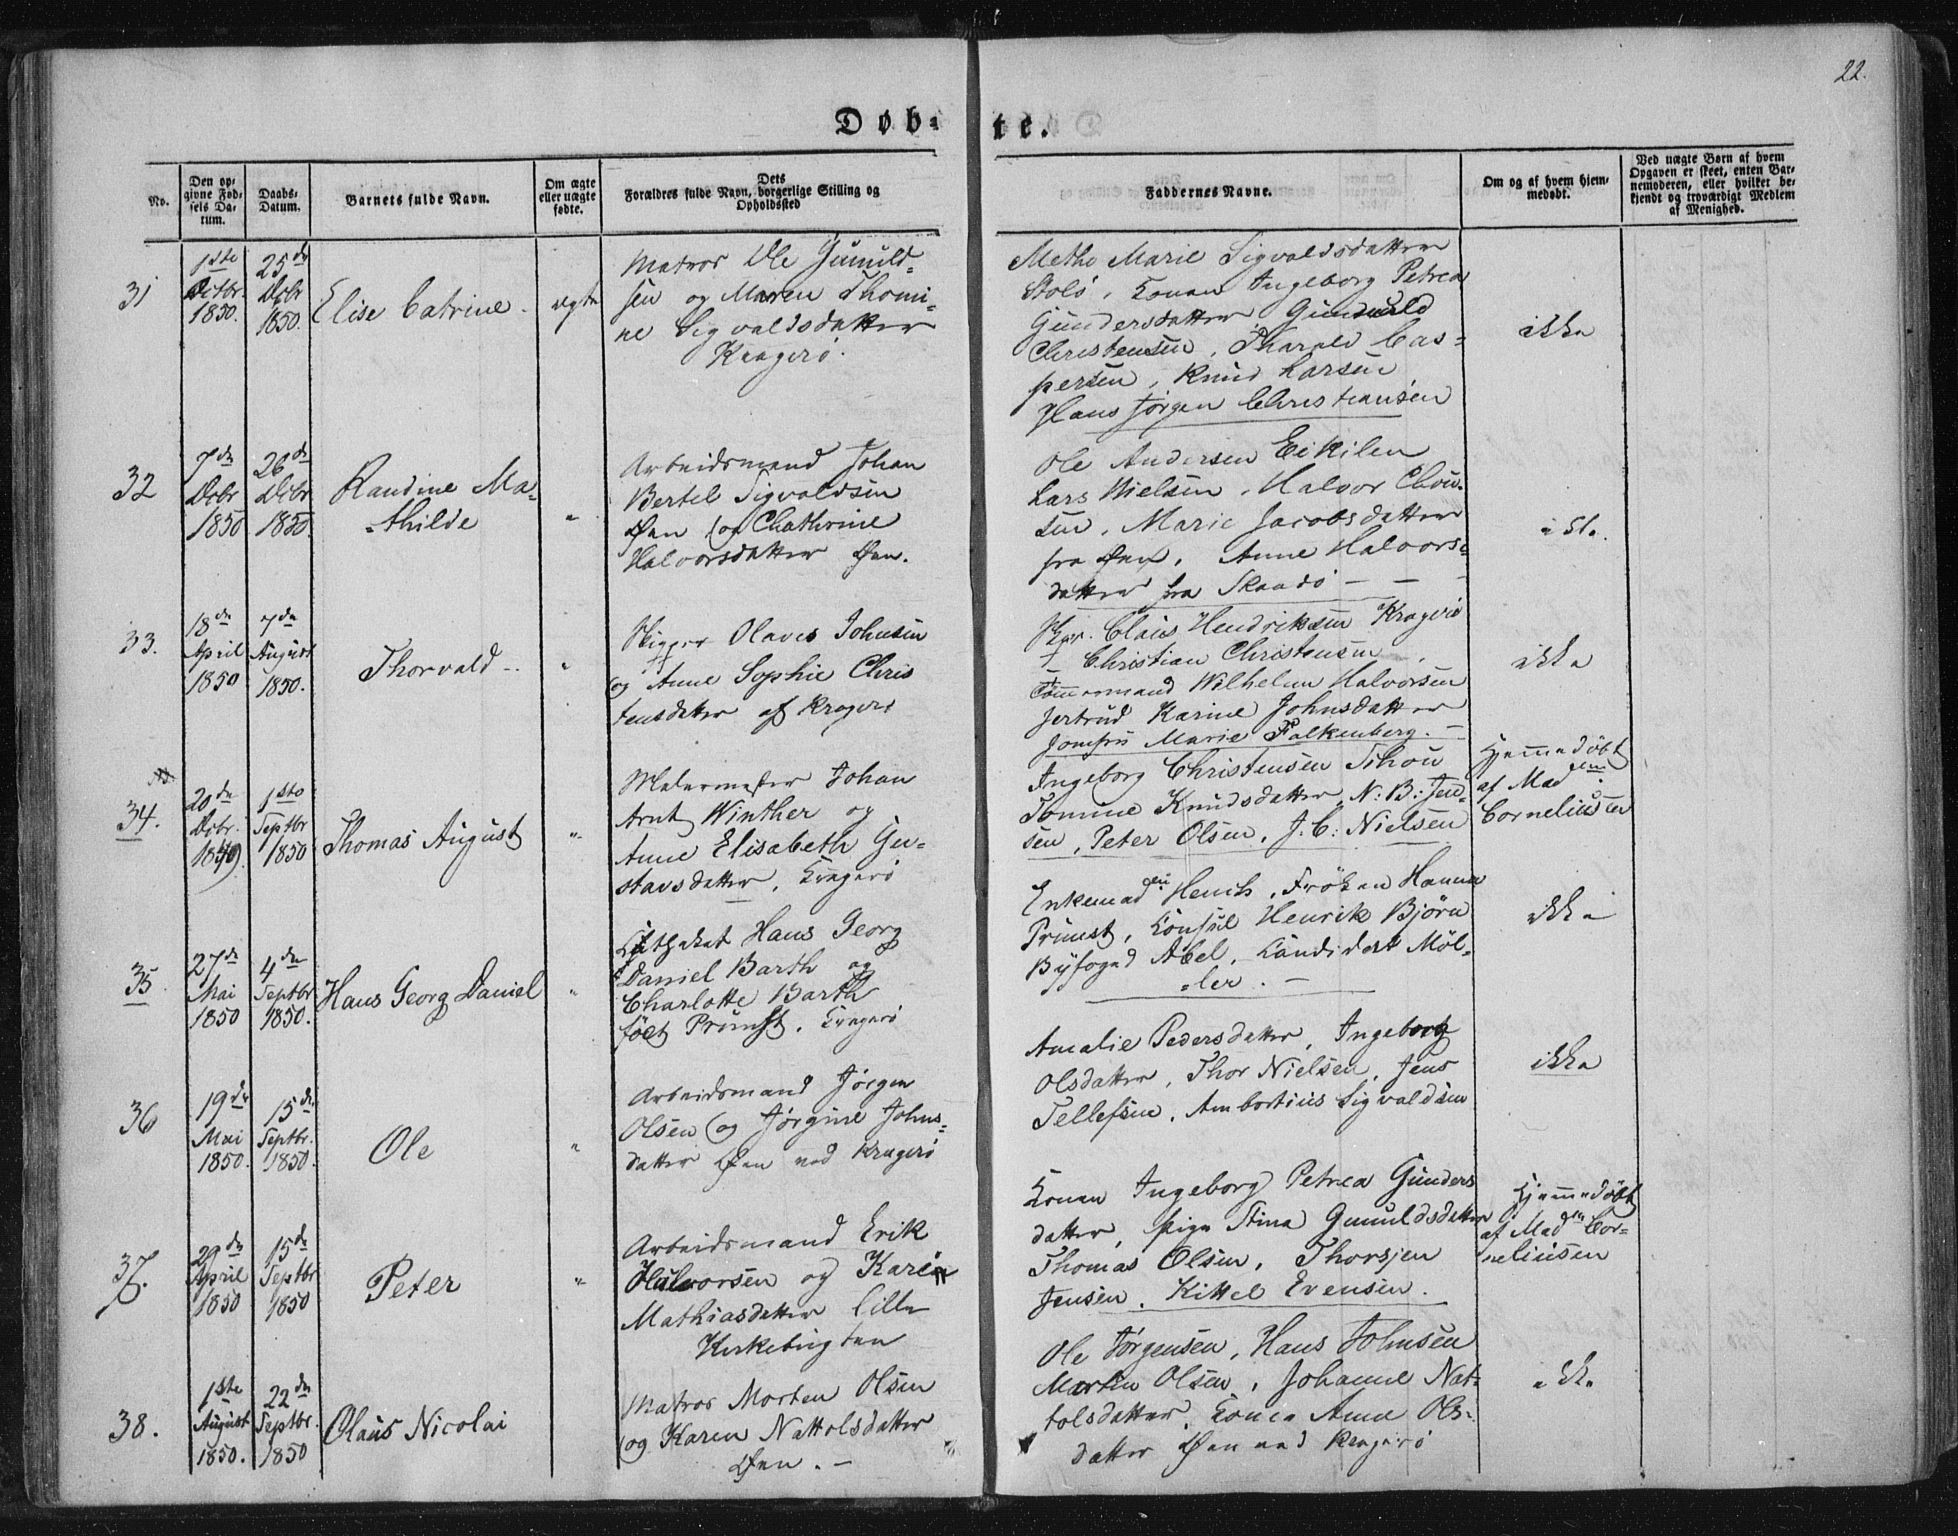 22.
Døb- te.
No.
Den op-
givne Fød-
sels Da-
tum.
Daabs-
Datum.
Barnets fulde Navn.
Om ægte
eller uægte
fødte.
Dets
Forældres fulde Navn, borgerlige Stilling og
Opholdssted
Faddernes Navne.
Om og af hvem hjem-
medøbt.
Ved uægte Børn af hvem
Opgaven er skeet, enten Bar-
nemoderen, eller hvilket be-
kjendt og troværdigt Medlem
af Menighed.
31
1ste
Octbr.
1850.
25de
Dcbr
1850.
Elise Catrine.
ægte
Matros Ole Gunuld-
sen og Maren Thomi-
ne Sigvaldsdatter
Kragerö.
Methe Marie Sigvaldsdatter
Stolö, Konen Ingeborg Petrea
Gundersdatter Gunnuld
Christensen, Tharald Cas-
persen, Knud Larsen
Hans Jørgen Christiansen
ikke
32
7de
Dcbr
1850
26de
Dcbr
1850.
Randine Ma-
thilde
"
Arbeidsmand Johan
Bertel Sigvaldsen
Øen og Chathrine
Halvorsdatter Øen.
Ole Andersen Eikilen
Lars Nielsen, Halvor Clau-
sen, Marie Jacobsdatter
fra Øen, Anne Halvors-
datter fra Skaadö
ikke
33.
18de
April
1850
7de
August
1850.
Thorvald
"
Skipper Olaves Johnsen
og Anne Sophie Chris
tensdatter af Kragerö
Skpr. Claus Hendriksen Kragerö
Christian Christensen
Tömmermand Wilhelm Halvorsen
Jertrud Karine Johnsdatter
Jomfru Marie Falkenberg.
ikke
34.
20de
Dcbr.
1849.
1ste
Septbr
1850
Thomas August
"
Malermester Johan
Arnt Winther og
Anne Elisabeth Gu-
stavsdatter, Kragerö
Ingeborg Christensen Schou
Tomine Knudsdatter, N: B: Jen-
sen, Peter Olsen, J. C: Nielsen
Hjemmedöbt
af Madem
Corneliusen
35
27de
Mai
1850
4de
Septbr
1850.
Hans Georg Daniel
"
Hans Georg
Daniel Barth og
Charlotte Barth
föd Prunst. Kragerö
Enkemadm Henchs, Fröken Hanna
Prunst, Konsul Henrik Björn
Byfoged Abel, Kandidat Möl-
ler.
ikke
36
19de
Mai
1850.
15de
Septbr.
1850.
Ole
"
Arbeidsmand Jörgen
Olsen og Jørgine Johns-
datter Øen ved Kragerö
Amalie Pedersdatter, Ingeborg
Olsdatter, Thor Nielsen, Jens
Tellefsen, Ambortius Sigvaldsen
ikke
37.
29de
April
1850
15de
Septbr
1850
Peter
"
Arbeidsmand Erik
Halvorsen og Karen
Mathiasdatter lille
Kirkebugten
Konen Ingeborg Petrea Gunders
datter, pige Stina Gunuldsdatter
Thomas Olsen, Thorsjen
Jensen, Kittel Evensen.
Hjemmedöbt
af Madm Cor-
neliusen
38.
1ste
August
1850.
22de
Septbr.
1850
Olaus Nicolai
Matros Morten Olsen
og Karen Nattolsdatter
Øen.
Ole Jørgensen, Hans Johnsen
Martin Olsen, Johanne Nat-
tolsdatter, Konen Anne Ols-
datter Øen ved Kragerö
ikke